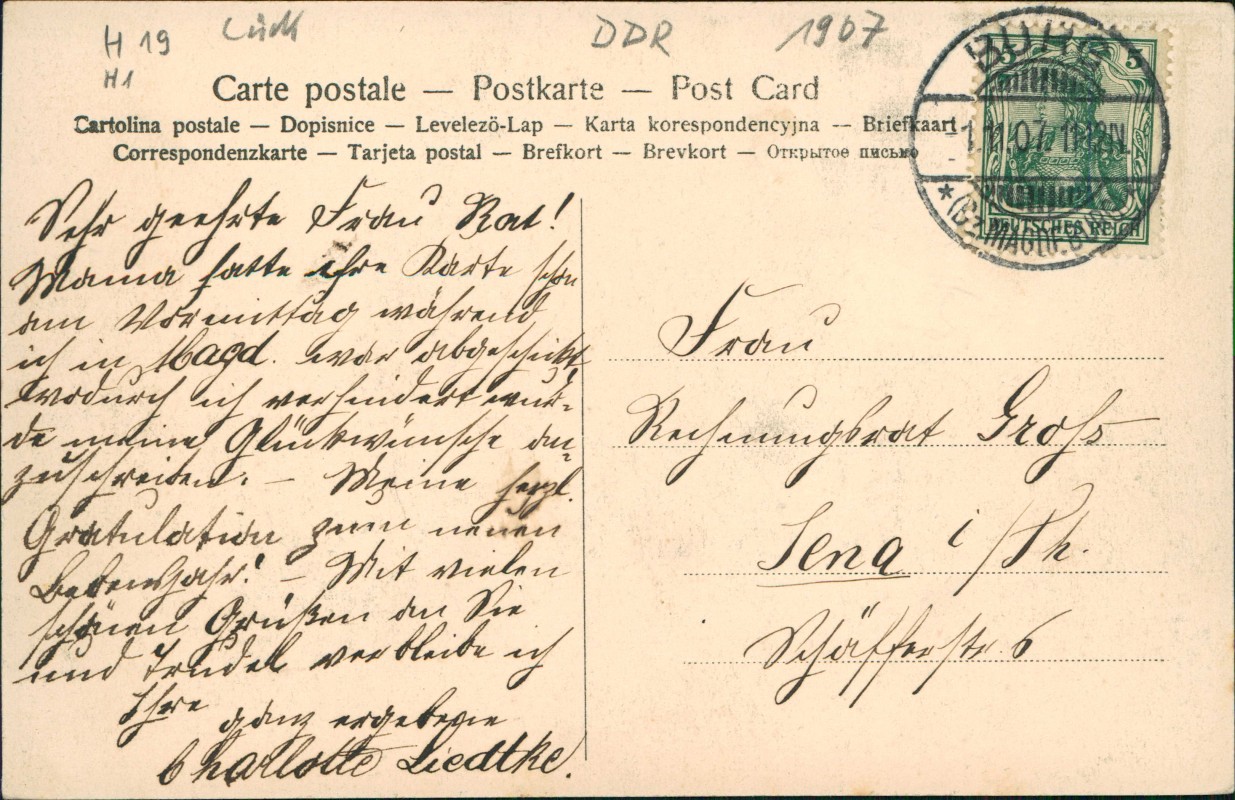 H 19
H1
DDR
1907
Carte postale — Postkarte — Post Card
Cartolina postale — Dopisnice — Levelező-Lap — Karta korespondencyjna — Briefkaart
Correspondenzkarte — Tarjeta postal — Brefkort — Brevkort — Открытое письмо
BURG
5 5
1.11.07. 11-12N.
* (BZ. MAGDEB.)
DEUTSCHES REICH
Sehr geehrte Frau Rat!
Mama hatte ihre Karte schon
am Vormittag während
ich in Magd. war abgeschickt,
wodurch ich verhindert wur-
de meine Glückwünsche an-
zuschreiben. — Meine herzl.
Gratulation zum neuen
Lebensjahr! — Mit vielen
schönen Grüßen an Sie
und Trudel verbleibe ich
Ihre
ganz ergebene
Charlotte Liedtke.
Frau
Rechnungsrat Groß
Jena i/Th.
Schäfferstr. 6